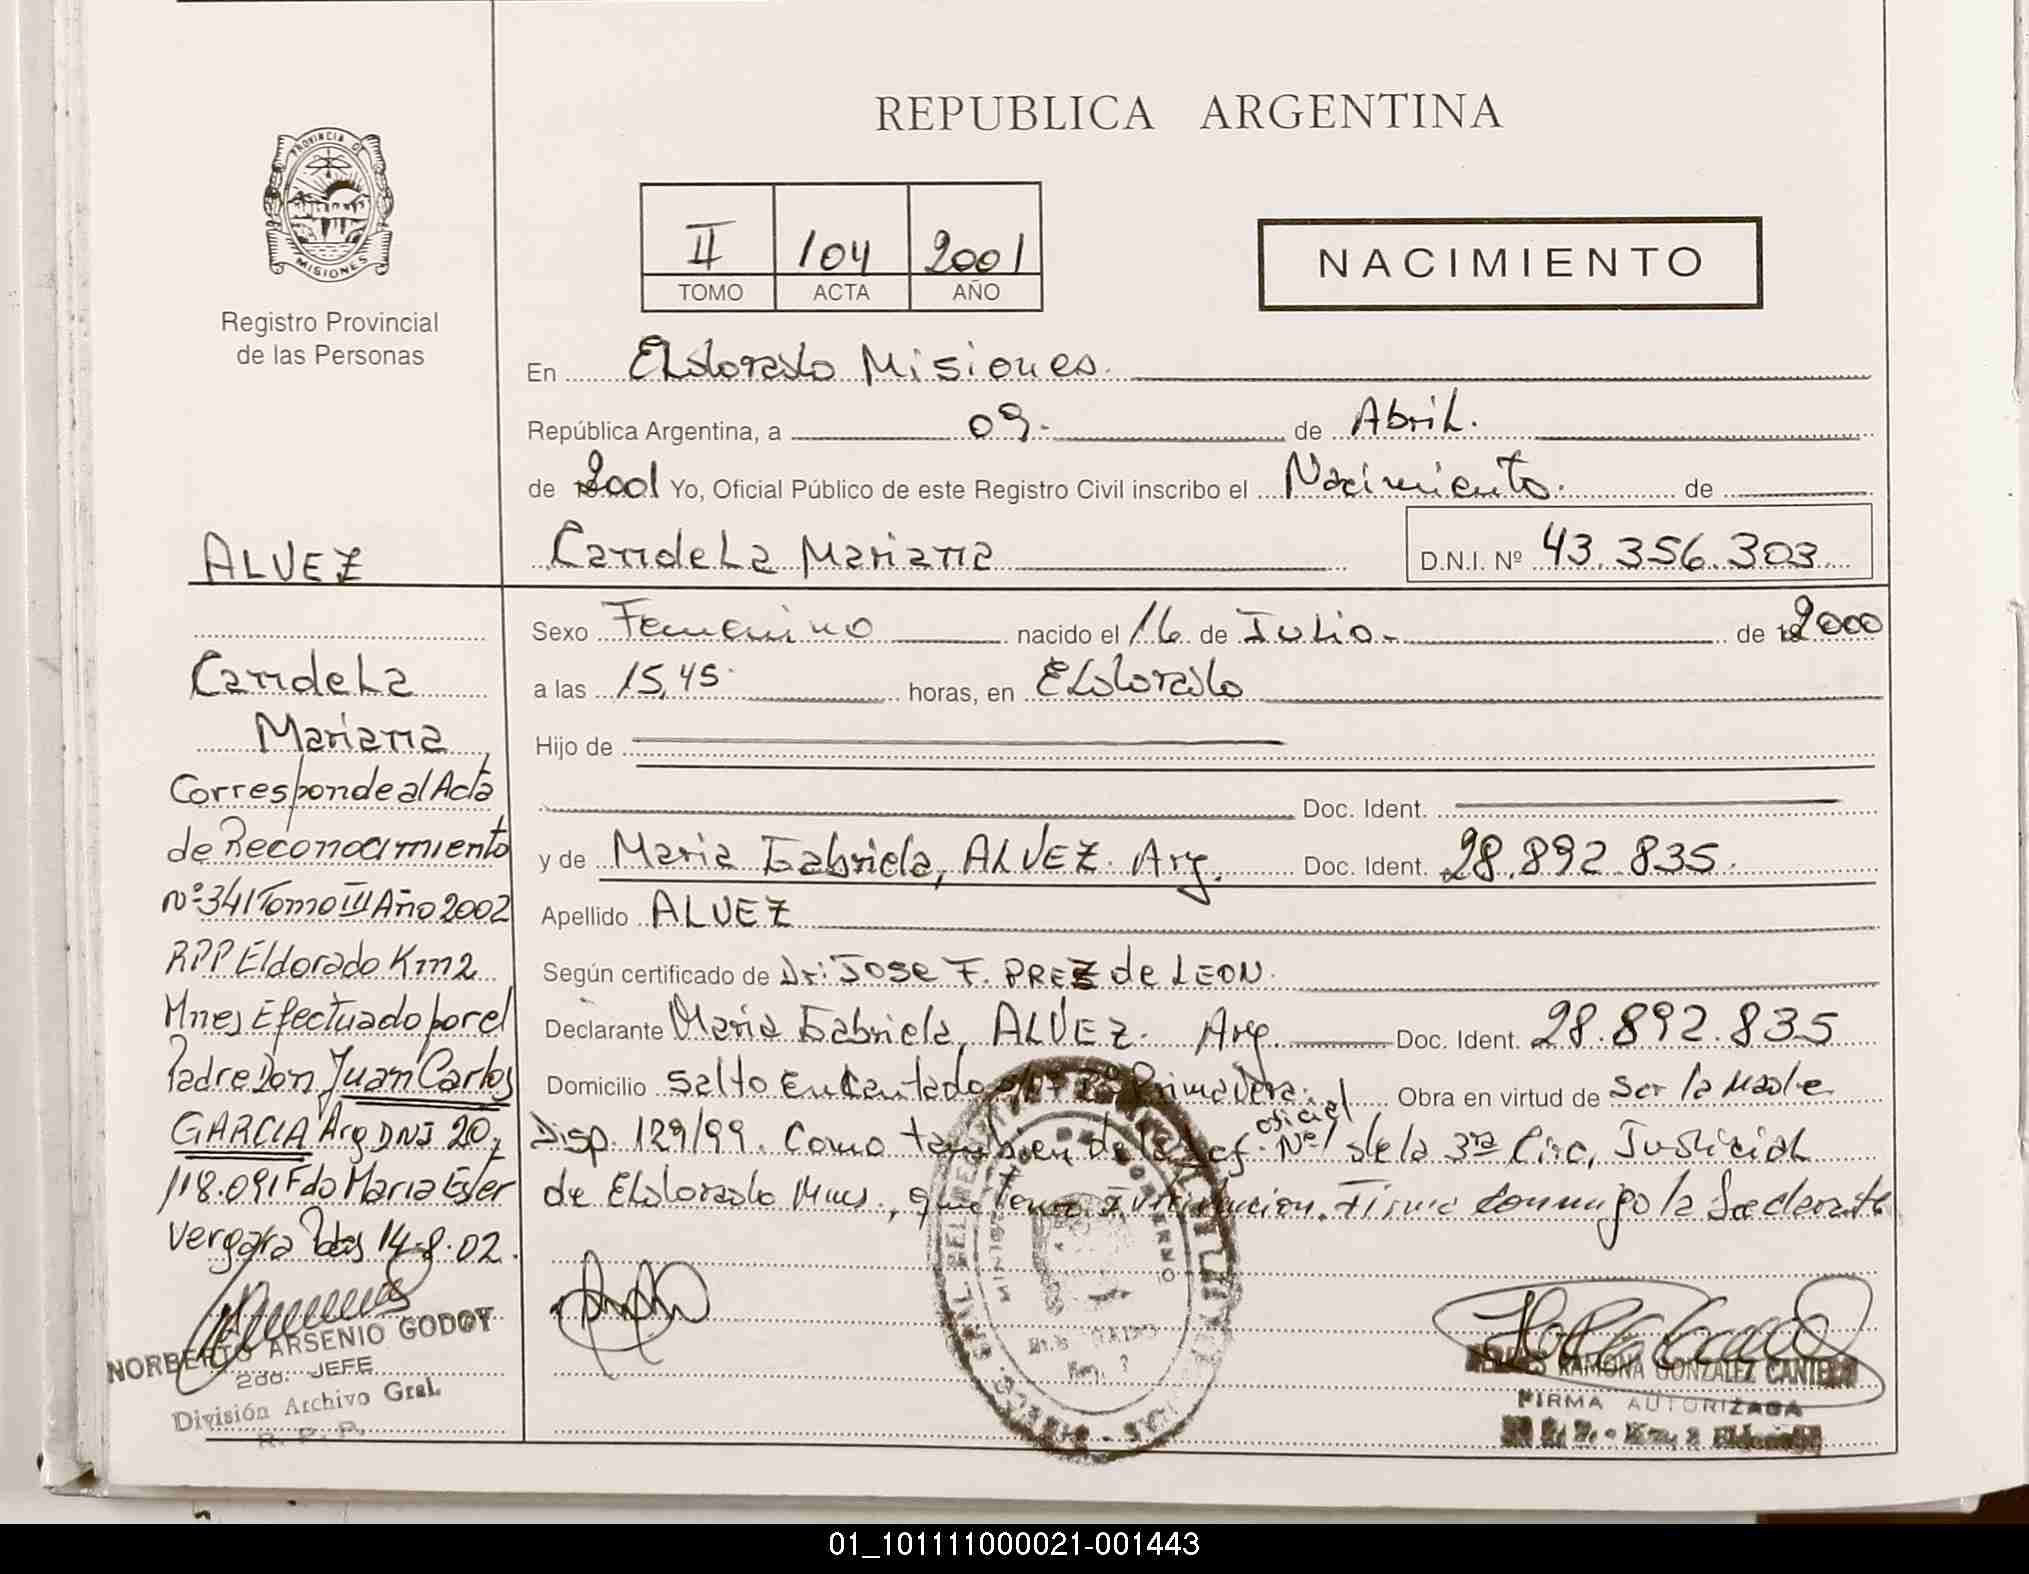 REPUBLICA ARGENTINA
PROVINCIA DE
MISIONES
Registro Provincial
de las Personas
II 104 2001
TOMO ACTA AÑO
NACIMIENTO
En Eldorado Misiones.
República Argentina, a 09. de Abril.
de 2001 Yo, Oficial Público de este Registro Civil inscribo el Nacimiento. de
Candela Mariana D.N.I. Nº 43.356.303
Sexo Femenino nacido el 16 de Julio de 2000
a las 15,45. horas, en Eldorado
Hijo de
Doc. Ident.
y de Maria Gabriela, ALVEZ. Arg. Doc. Ident. 28.892.835.
Apellido ALVEZ
Según certificado de Dr: JOSE F. PREZ de LEON.
Declarante Maria Gabriela, ALVEZ. Arg. Doc. Ident. 28.892.835
Domicilio Salto Encantado Primavera. Obra en virtud de ser la Madre
oficial
Disp. 129/99. Como tambien de la Def. Nº1 de la 3ra Circ, Judicial
de Eldorado Mnes., que tomo intervencion. Firma conmigo la declarante
ALVEZ
Candela
Mariana
Corresponde al Acta
de Reconocimiento
Nº 341 Tomo III Año 2002
RPP Eldorado Km2
Mnes Efectuado por el
Padre Don Juan Carlos
GARCIA Arg DNI 20,
118.091 Fdo Maria Ester
Vergara Pdas 14-8-02.
NORBERTO ARSENIO GODOY
2do. JEFE
División Archivo Gral.
R. P. P.
RAMONA GONZALEZ
FIRMA AUTORIZADA
01_101111000021-001443